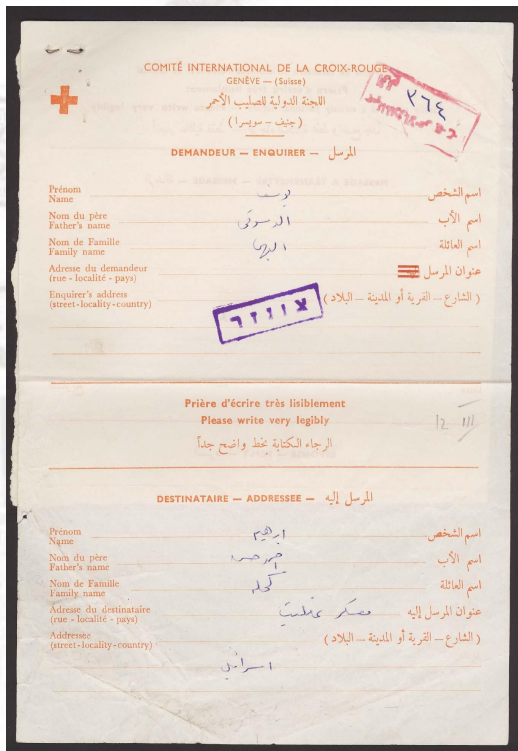 COMITÉ INTERNATIONAL DE LA CROIX-ROUGE
GENÈVE — (Suisse)
اللجنة الدولية للصليب الأحمر
(جنيف – سويسرا)
٣٦٤
DEMANDEUR — ENQUIRER — المرسل
Prénom
Name
يوسف
اسم الشخص
Nom du père
Father's name
الدسوقى
اسم الأب
Nom de Famille
Family name
اسم العائلة
Adresse du demandeur
(rue - localité - pays)
عنوان المرسل
Enquirer's address
(street-locality-country)
(الشارع – القرية أو المدينة – البلاد)
צונזר
Prière d'écrire très lisiblement
Please write very legibly
الرجاء الكتابة بخط واضح جداً
12 III
DESTINATAIRE — ADDRESSEE — المرسل إليه
Prénom
Name
ابرهيم
اسم الشخص
Nom du père
Father's name
اسم الأب
Nom de Famille
Family name
اسم العائلة
Adresse du destinataire
(rue - localité - pays)
معسكر عتليت
عنوان المرسل إليه
Addressee
(street-locality-country)
(الشارع – القرية أو المدينة – البلاد)
اسرائيل